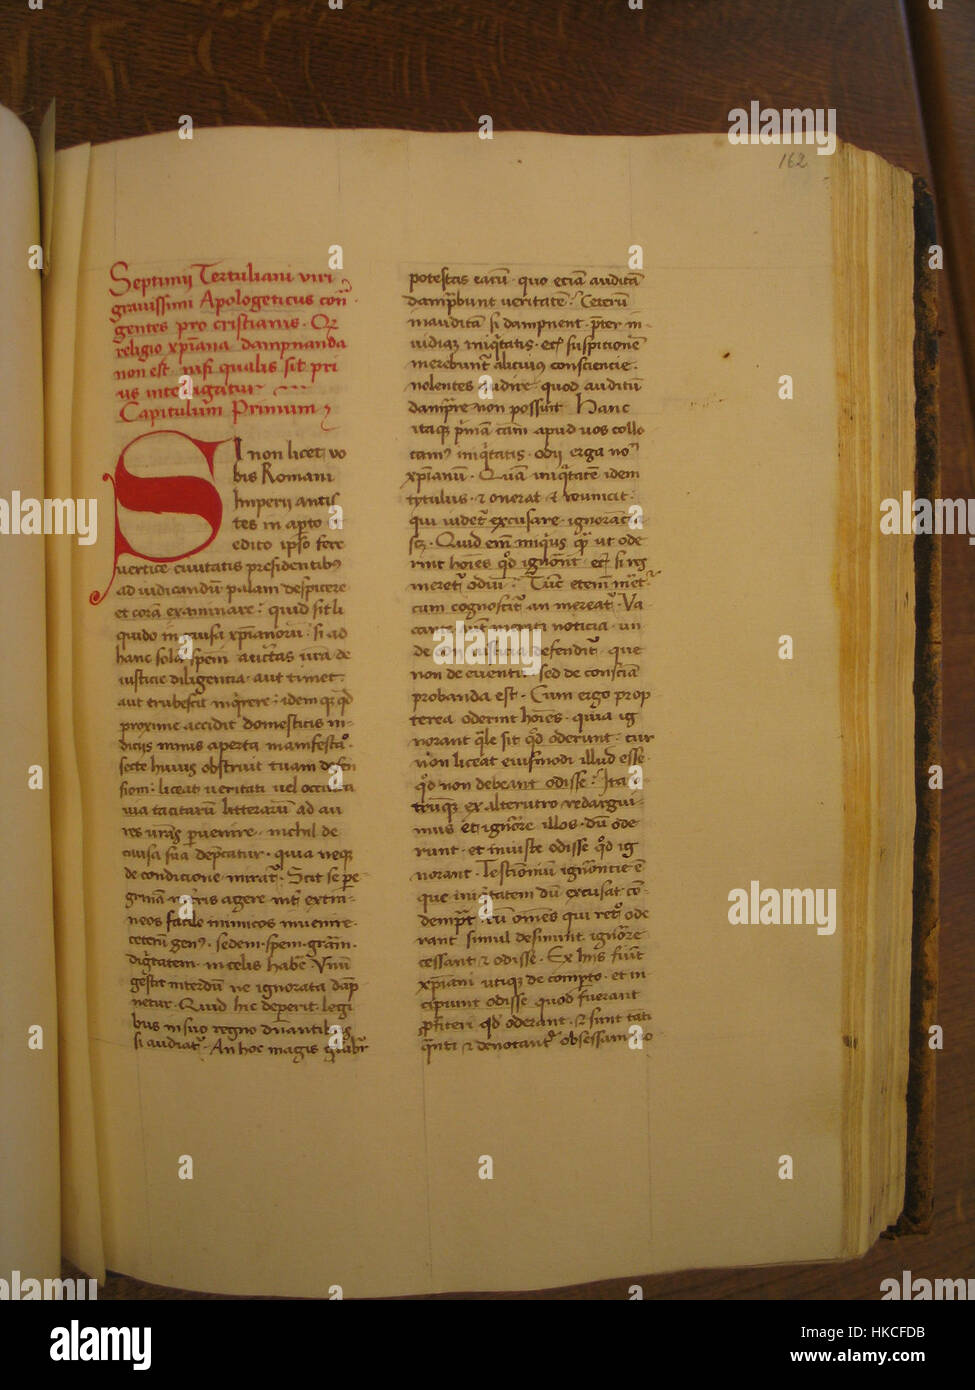 162
Septimii Tertuliani viri
grauissimi Apologeticus con̄
gentes pro cristianis. Qr̄
religio xp̄iana dampnanda
non est. nisi qualis sit pri
us intelligatur
Capitulum Primum
SI non licet vo
bis Romani
Imperii antis
tes in ap̄to et
edito ip̄so fere
uertice ciuitatis presidentibꝰ
ad iudicandū palam despicere
et corā examinare: quid sit li
quido in causa xp̄ianorū. si ad
hanc solā spēm auctītas ur̄a de
iusticie diligencia aut timet
aut erubescit inq̄rere: idem
proxime accidit domesticis in-
diciis nimis aperta
secte huius obstruit uiam defen
siom: liceat veritati vel occulta
uia tacitarum litterarum ad au
res ur̄as p̄uenire. nichil de
causa sua dep̄catur. quia neq̄
de condicione mirat̄. Scit se pe
grinā in terris agere int̄ extra
neos facile inimicos inuenire.
ceterū genꝰ. sedem. spem. gr̄am.
dig̅tatem. in celis habē Vnū
gestit interdū ne ignorata dāp
netur. Quid hic deperit legi
bus in suo regno
si audiat̄. An hoc magis
potestas earū. quo eciam auditā
damp̄bunt ueritatē. Ceterū
inauditā si dampnent. p̄ter in-
uidiaȝ iniq̄tatis. et suspitionē
merebunt̄ alicuius consciencie.
nolentes audire quod auditū
damp̄re non possunt Hanc
itaq̄ p̄mam cām apud uos collo
camꝰ iniq̄tatis. odii erga nom̄
xp̄ianū. Quā iniq̄tatē idem
tytulus. & onerat & reuincit.
qui uidet̄ excusare. ignorācia
scȝ. Quid em̄ iniqiꝰ q̄ ut ode
rint hoīes qd̄ ignorāt. et si res
meret̄ odiū. Tūc etem̄ meret̄
cum cognoscit̄ an mereat̄. Va
cante meriti noticia. un
de odii iusticia defendit̄. que
non de euentu. sed de consciā
probanda est. Cum ergo prop
terea oderint hoīes. quia ig
norant q̄le sit qd̄ oderunt. cur
non liceat eiusmodi illud esse.
qd̄ non debeant odisse: Ita
trūq̄ ex alterutro redargui-
mus et ignōre illos. dū ode
runt. et iniuste odisse qd̄ ig
norant. Testimoniū ignōrātie ē
que iniq̄tatem dū excusat cō-
demp̄t. cū om̄es qui retꝰ ode
rant simul desinunt ignōrare
cessant & odisse. Ex hiis fiūt
xp̄iani utiq̄ de compto. et in
cipiunt odisse quod fuerant
p̄fiteri qd̄ oderant. & sunt tāti
q̄nti & denotant̄ obsessam
alamy
Image ID: HKCFDB
www.alamy.com